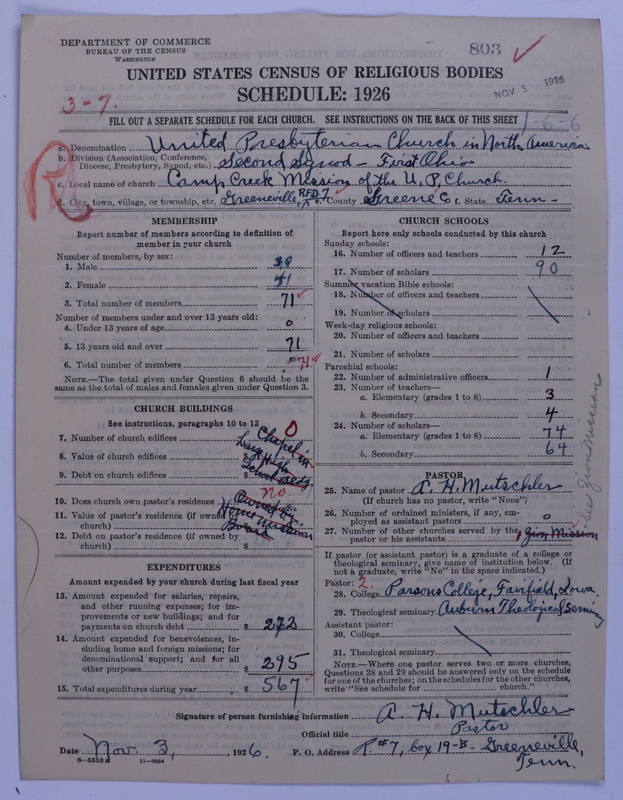 DEPARTMENT OF COMMERCE
BUREAU OF THE CENSUS
WASHINGTON
803
UNITED STATES CENSUS OF RELIGIOUS BODIES
SCHEDULE: 1926
NOV 5 1926
3-7.
FILL OUT A SEPARATE SCHEDULE FOR EACH CHURCH. SEE INSTRUCTIONS ON THE BACK OF THIS SHEET
1-6-6
R
a. Denomination United Presbyterian Church in North America
b. Division (Association, Conference, Diocese, Presbytery, Synod, etc.) Second Synod - First Ohio
c. Local name of church Camp Creek Mission of the U. P. Church.
d. City, town, village, or township, etc. Greeneville, RFD-7 e. County Greene Co f. State Tenn-
MEMBERSHIP
Report number of members according to definition of
member in your church
Number of members, by sex:
1. Male 30
2. Female 41
3. Total number of members 71
Number of members under and over 13 years old:
4. Under 13 years of age 0
5. 13 years old and over 71
6. Total number of members 71
NOTE.—The total given under Question 6 should be the
same as the total of males and females given under Question 3.
CHURCH BUILDINGS
See instructions, paragraphs 10 to 12 0
7. Number of church edifices Chapel in
8. Value of church edifices $ High
9. Debt on church edifices $ School Bldg
10. Does church own pastor's residence no
11. Value of pastor's residence (if owned by
church) $ Owned by Home Mission Board
12. Debt on pastor's residence (if owned by
church) $
EXPENDITURES
Amount expended by your church during last fiscal year
13. Amount expended for salaries, repairs,
and other running expenses; for im-
provements or new buildings; and for
payments on church debt $ 272
14. Amount expended for benevolences, in-
cluding home and foreign missions; for
denominational support; and for all
other purposes $ 295
15. Total expenditures during year $ 567
CHURCH SCHOOLS
Report here only schools conducted by this church
Sunday schools:
16. Number of officers and teachers 12
17. Number of scholars 90
Summer vacation Bible schools:
18. Number of officers and teachers
19. Number of scholars
Week-day religious schools:
20. Number of officers and teachers
21. Number of scholars
Parochial schools:
22. Number of administrative officers 1
23. Number of teachers—
a. Elementary (grades 1 to 8) 3
b. Secondary 4
24. Number of scholars—
a. Elementary (grades 1 to 8) 74
b. Secondary 64
See Zion Mission
PASTOR
25. Name of pastor A. H. Mutschler
(If church has no pastor, write "None")
26. Number of ordained ministers, if any, em-
ployed as assistant pastors 0
27. Number of other churches served by the
pastor or his assistants 1 Zion Mission
If pastor (or assistant pastor) is a graduate of a college or
theological seminary, give name of institution below. (If
not a graduate, write "No" in the space indicated.)
Pastor: 2.
28. College Parsons College, Fairfield, Iowa.
29. Theological seminary Auburn Theological Seminary
Assistant pastor:
30. College
31. Theological seminary
NOTE.—Where one pastor serves two or more churches,
Questions 28 and 29 should be answered only on the schedule
for one of the churches; on the schedules for the other churches,
write "See schedule for church."
Signature of person furnishing information A. H. Mutschler
Official title Pastor
Date Nov. 3, 1926. P. O. Address R #7, box 19-B- Greeneville,
Tenn.
8-5518a 11-9054